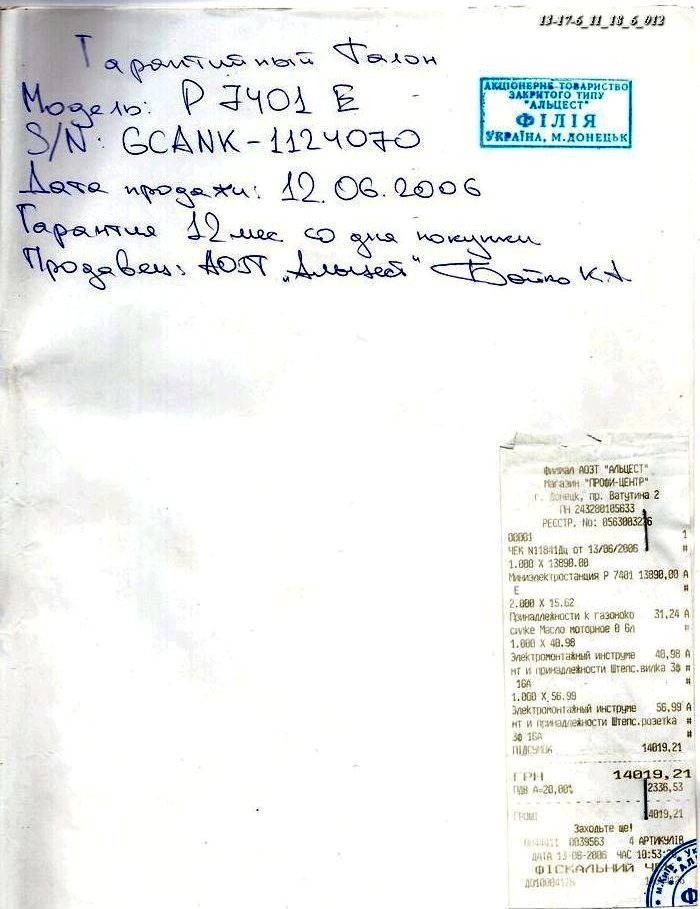 13-17-6_11_18_6_012
Гарантийный Талон
Модель: P 7401 E
S/N: GCANK-1124070
Дата продажи: 12.06.2006
Гарантия 12 мес со дня покупки
Продавец: АОЗТ „Альцест" Бойко К.А.
АКЦІОНЕРНЕ ТОВАРИСТВО
ЗАКРИТОГО ТИПУ
"АЛЬЦЕСТ"
ФІЛІЯ
УКРАЇНА, М.ДОНЕЦЬК
Филиал АОЗТ "АЛЬЦЕСТ"
Магазин "ПРОФИ-ЦЕНТР"
г. Донецк, пр. Ватутина 2
ПН 243200105633
РЕЕСТР. No:
00001 1
ЧЕК от 13/06/2006 #
1.000 X 13890.00
Миниэлектростанция P 7401 13890,00 А
E #
2.000 X 15.62
Принадлежности к газоноко 31,24 А
Масло моторное 0 6л #
1.000 X 40.98
Электромонтажный инструме 40,98 А
нт и принадлежности Штепс.вилка 3ф #
16А #
1.000 X 56.99
Электромонтажный инструме 56,99 А
нт и принадлежности Штепс.розетка #
3ф 16А #
ПІДСУМОК 14019,21
ГРН 14019,21
ПДВ А=20,00% 2336,53
4019,21
Заходьте ще!
0039563 4 АРТИКУЛІВ
ДАТА 13-06-2006 ЧАС 10:53
ФІСКАЛЬНИЙ